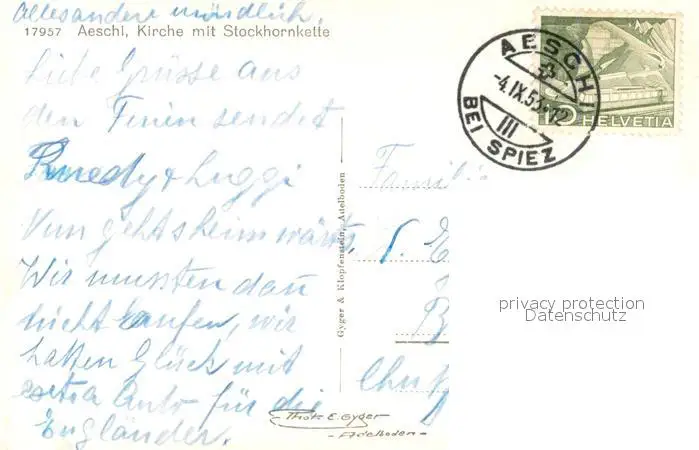 Alles andere mündlich.
17957 Aeschi, Kirche mit Stockhornkette
Liebe Grüsse aus
den Ferien sendet
Ruedy + Luggi
Nun gehts heimwärts,
Wir mussten dan
nicht laufen, wir
hatten Glück mit
extra Auto für die
Engländer.
Gyger & Klopfenstein, Adelboden
Phot. E. Gyger
- Adelboden -
AESCHI
-4.IX.53-12
III
BEI SPIEZ
HELVETIA
Famili
privacy protection
Datenschutz